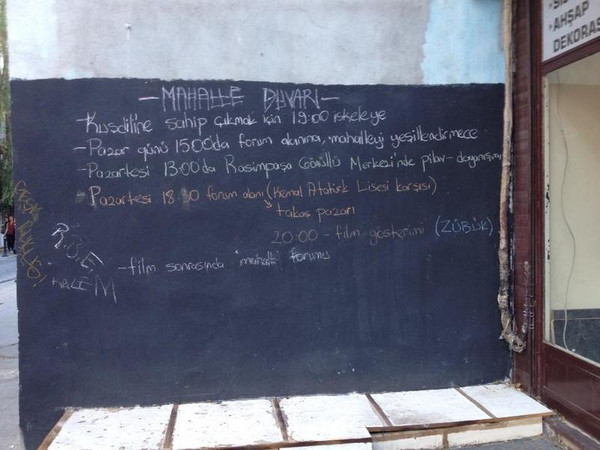 -MAHALLE DUVARI-
-Kuşdiline sahip çıkmak için 19:00 iskeleye
-Pazar günü 15:00'da forum alanına, mahalleyi yeşillendirmece
-Pazartesi 13:00'da Rasimpaşa Gönüllü Merkezi'nde pilav-dayanışması
-Pazartesi 18:30 forum alanı (Kemal Atatürk Lisesi karşısı)
takas pazarı
20:00 - film gösterimi (ZÜBÜK)
-film sonrasında "mahalle" forumu
R.B.E.
KALEM
AHŞAP
DEKORAS